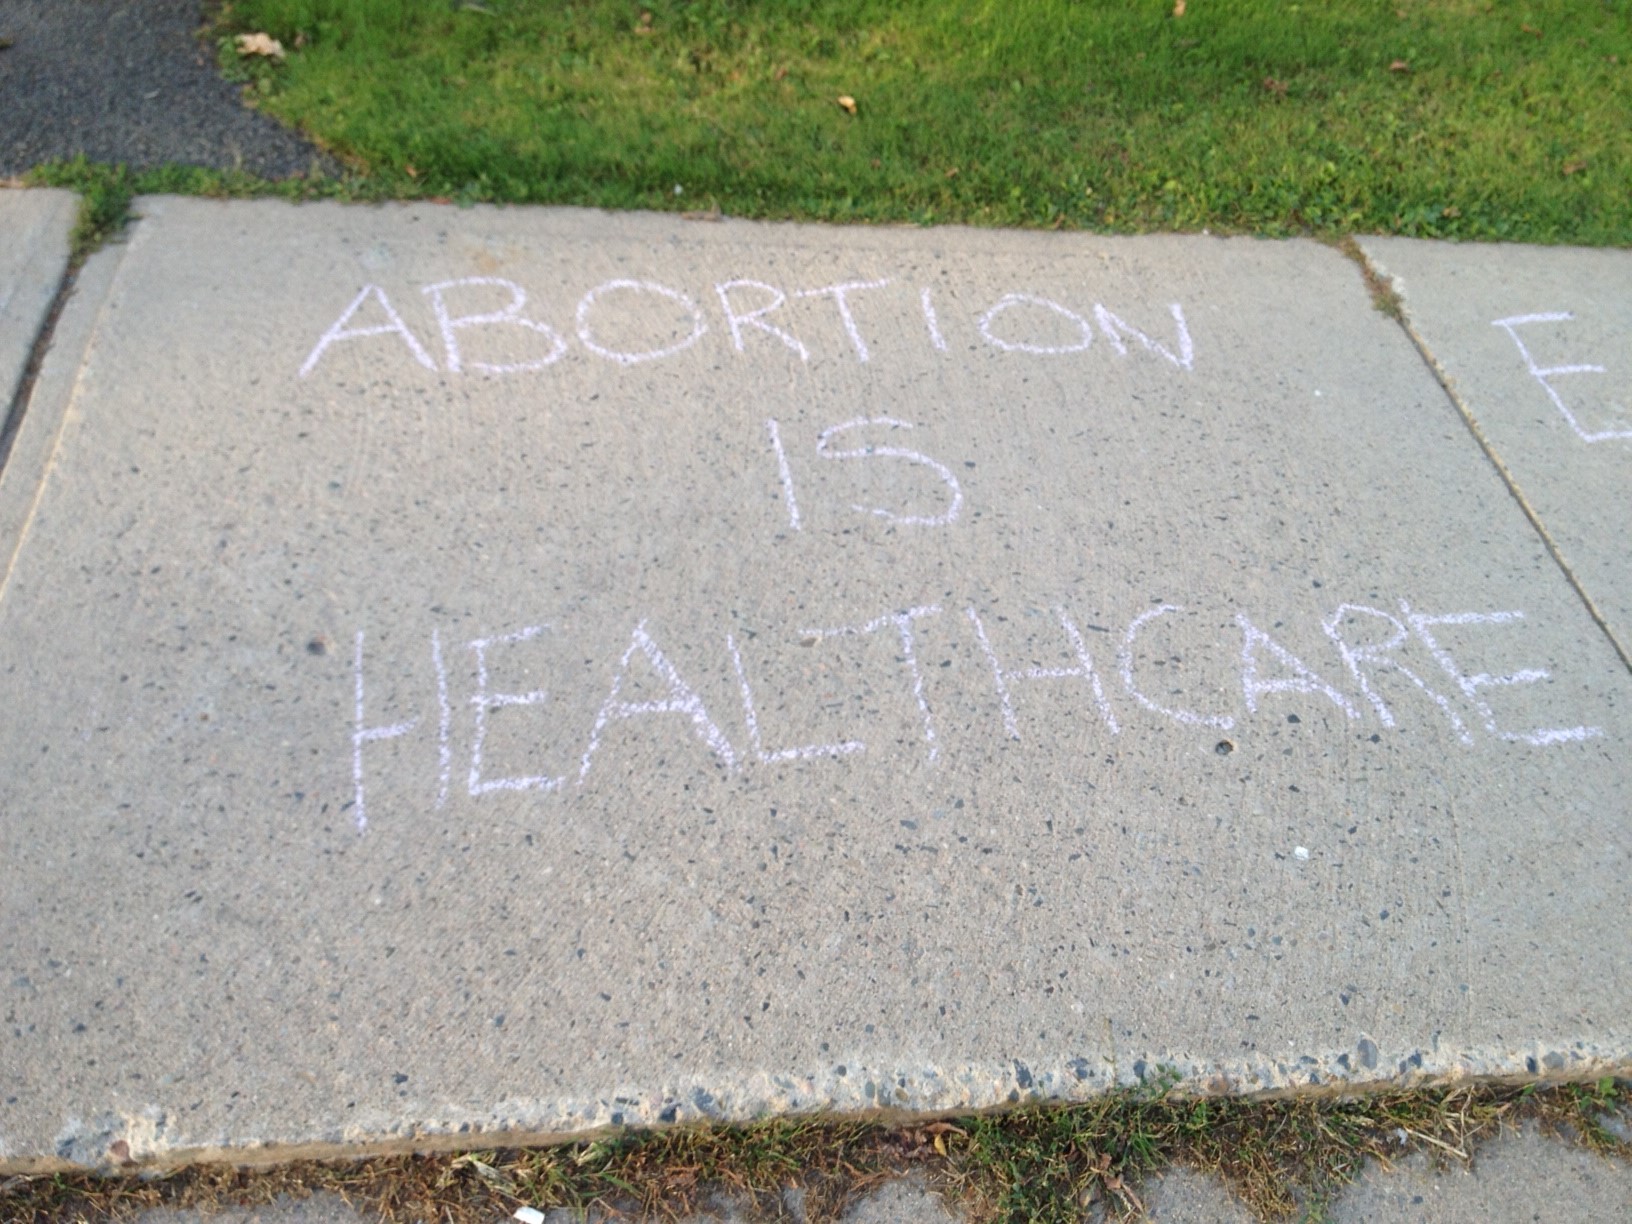 ABORTION
IS
HEALTHCARE
E